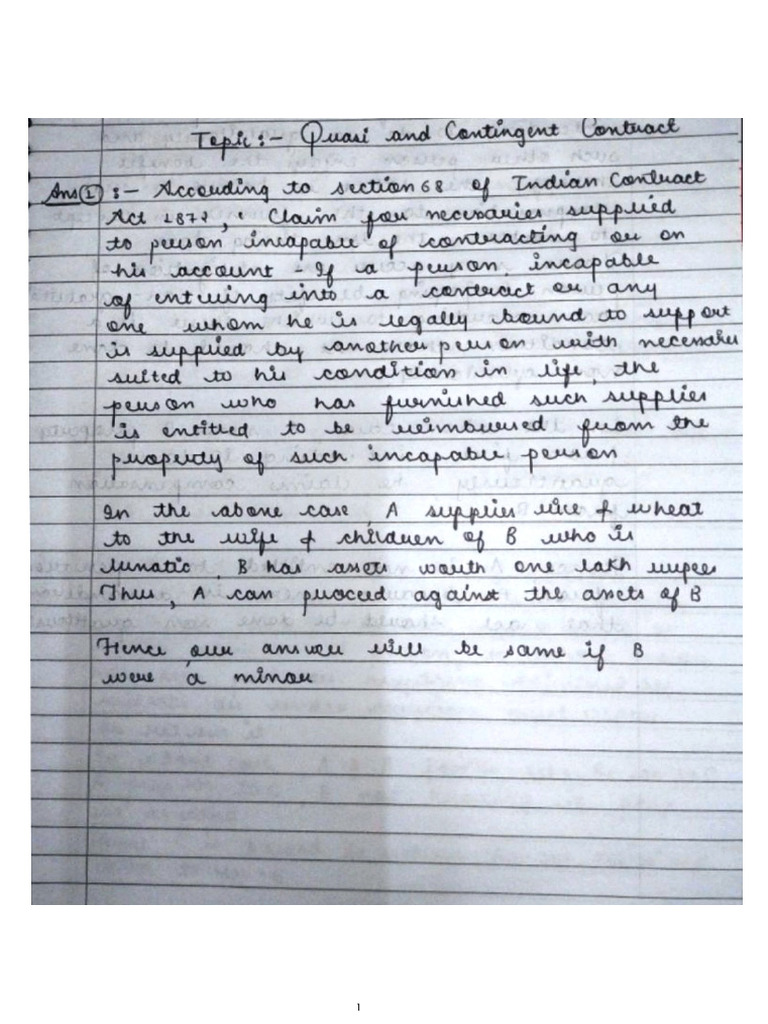 Topic:- Quasi and Contingent Contract
Ans(1) :- According to section 68 of Indian Contract
Act 1872, "Claim for necessaries supplied
to person incapable of contracting or on
his account - If a person incapable
of entering into a contract or any
one whom he is legally bound to support
is supplied by another person with necessaries
suited to his condition in life, the
person who has furnished such supplies
is entitled to be reimbursed from the
property of such incapable person
In the above case, A supplies rice & wheat
to the wife & children of B who is
lunatic, B has assets worth one lakh rupees
Thus, A can proceed against the assets of B
Hence our answer will be same if B
were a minor
1